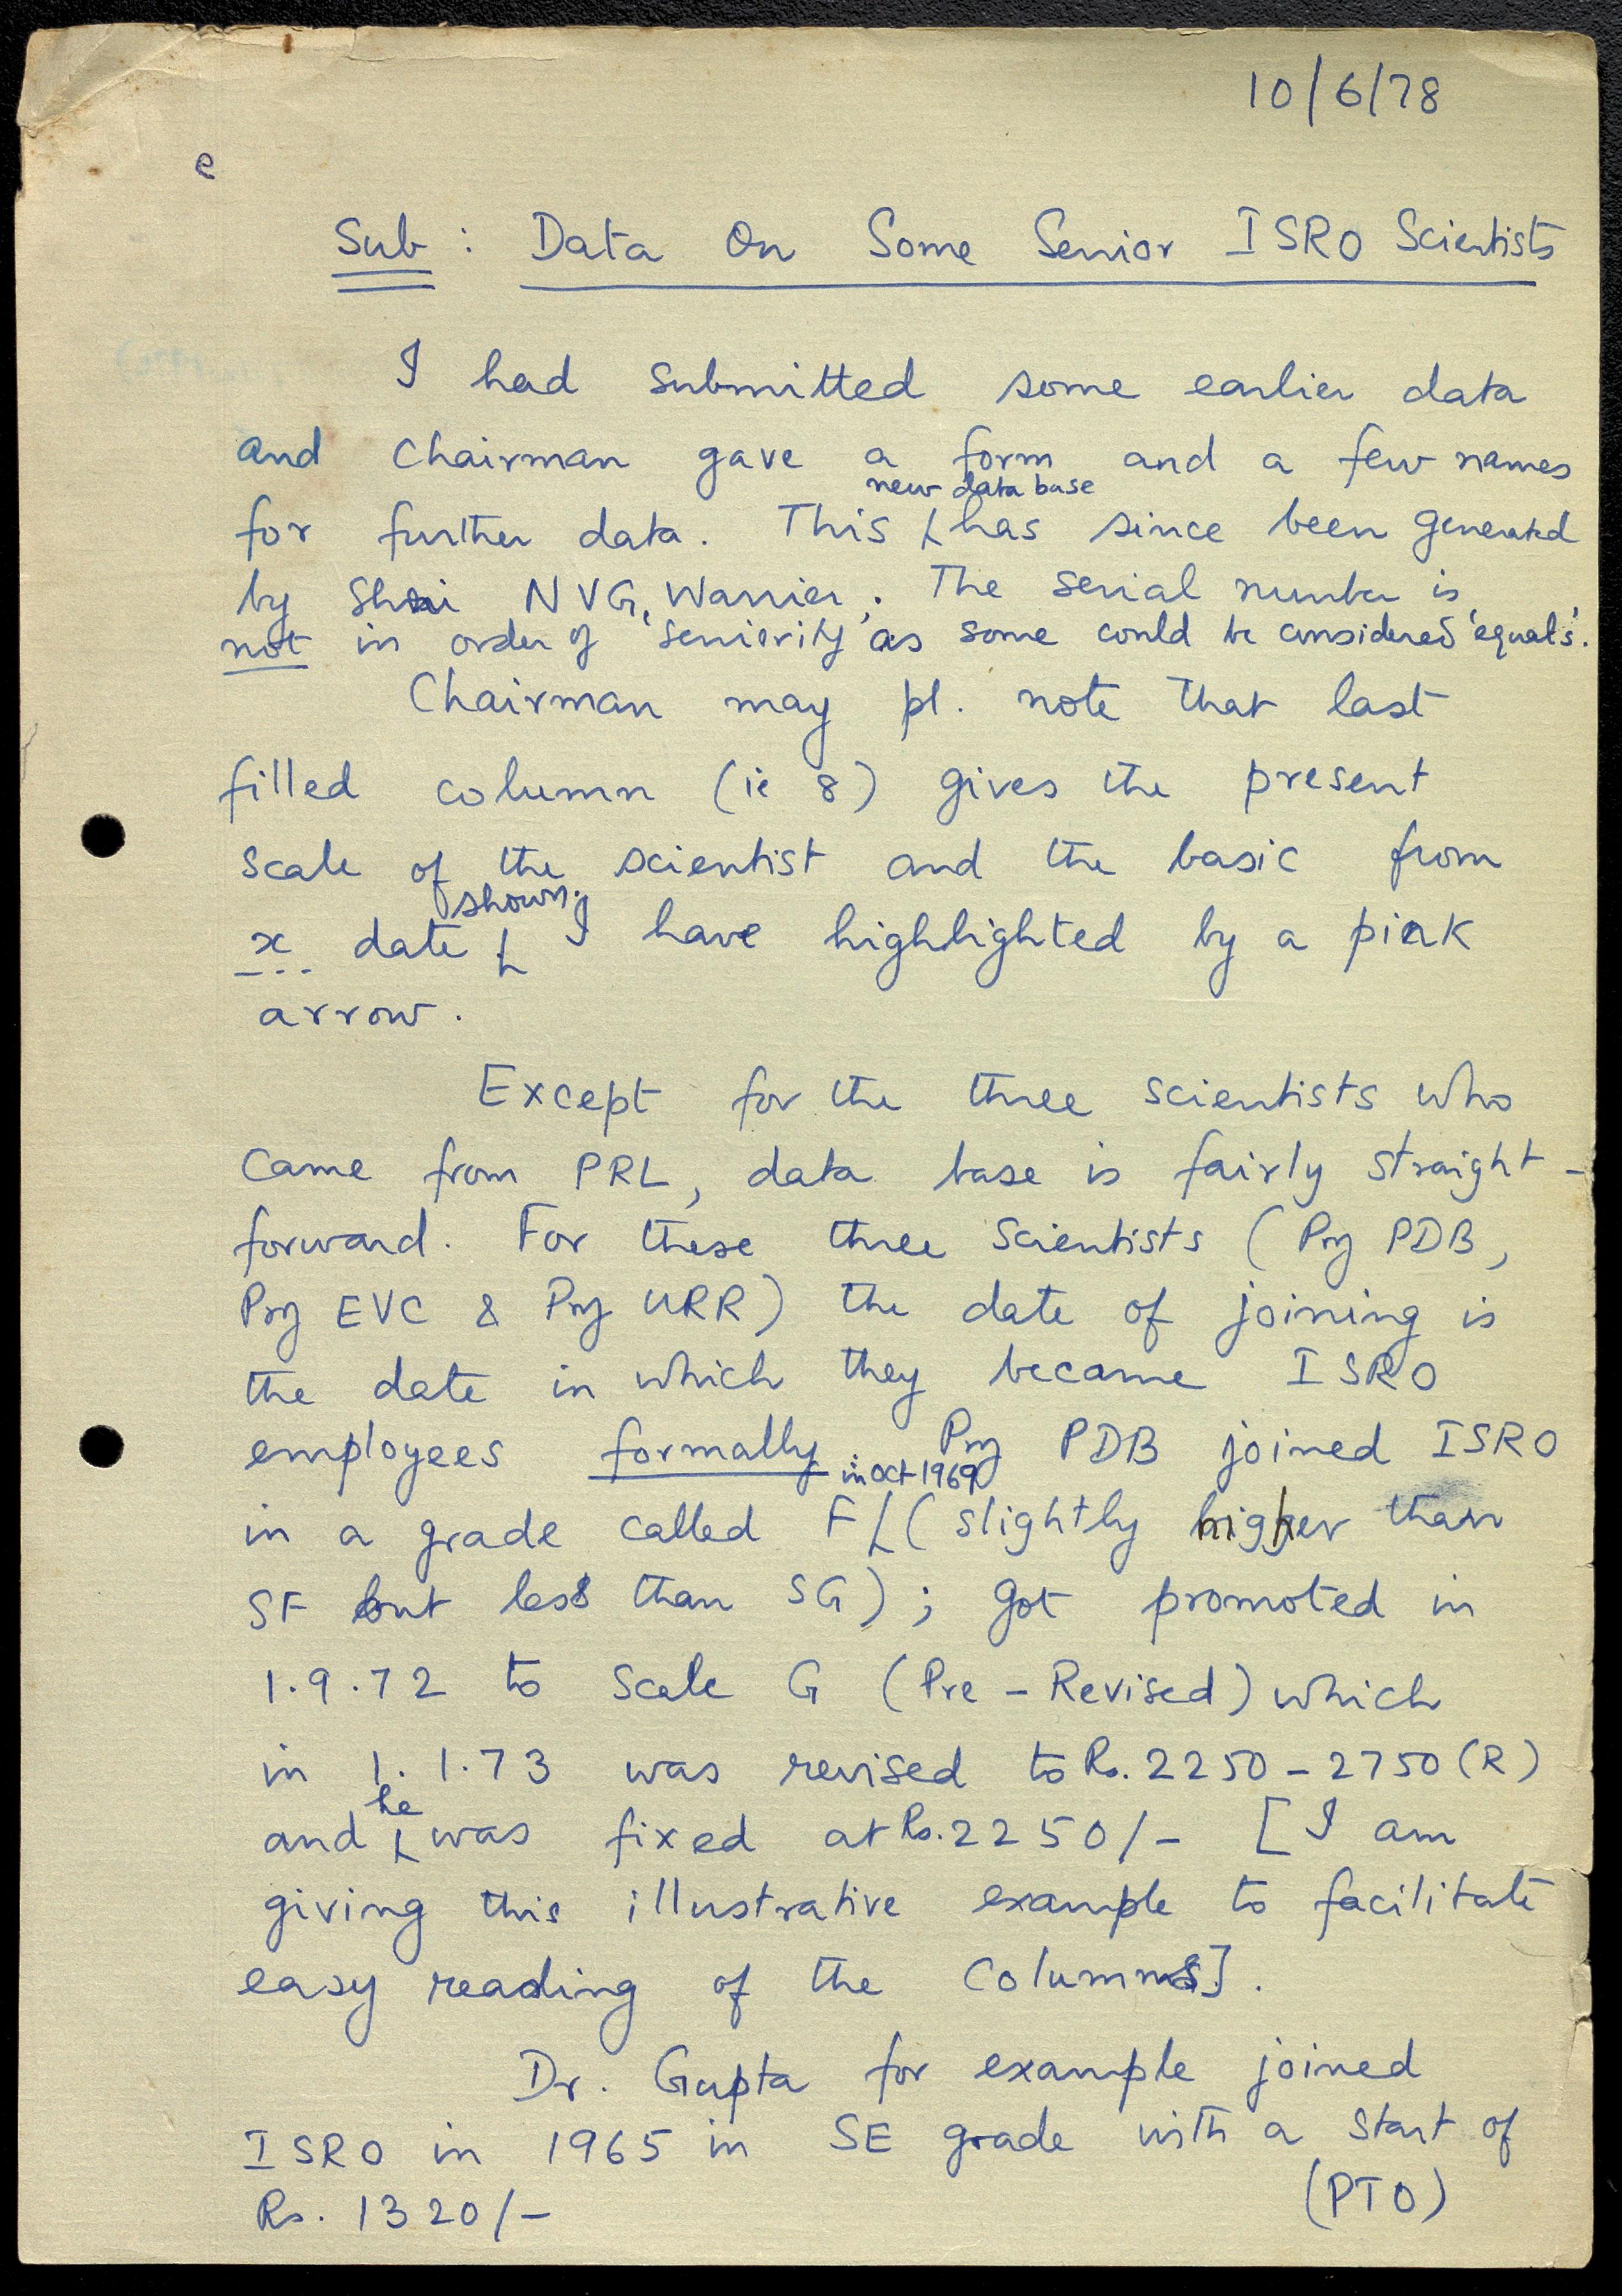 10/6/78
e
Sub : Data On Some Senior ISRO Scientists
I had submitted some earlier data
and Chairman gave a form and a few names
new data base
for further data. This has since been generated
by Shri NVG. Warrier. The serial number is
not in order of 'seniority' as some could be considered 'equals'.
Chairman may pl. note that last
filled column (ie 8) gives the present
scale of the scientist and the basic from
shown.
x date I have highlighted by a pink
arrow.
Except for the three scientists who
came from PRL, data base is fairly straight-
forward. For these three scientists (Prof PDB,
Prof EVC & Prof URR) the date of joining is
the date in which they became ISRO
employees formally. Prof PDB joined ISRO
in Oct 1969
in a grade called F (slightly higher than
SF but less than SG); got promoted in
1.9.72 to scale G (Pre-Revised) which
in 1.1.73 was revised to Rs. 2250-2750 (R)
he
and was fixed at Rs. 2250/- [I am
giving this illustrative example to facilitate
easy reading of the columns].
Dr. Gupta for example joined
ISRO in 1965 in SE grade with a start of
Rs. 1320/-
(PTO)